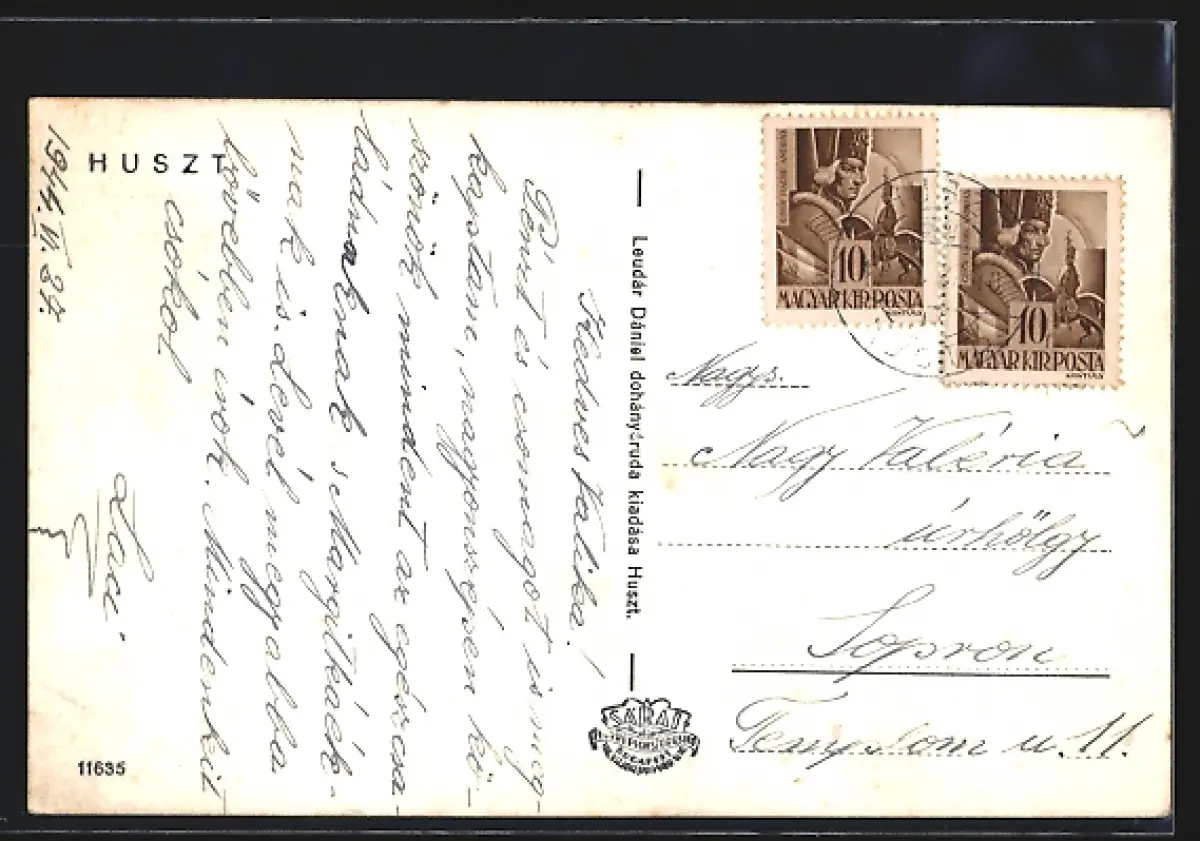 HUSZT
1944. V. 27.
Kedves Valika!
Pénzt és csomagot is meg-
kaptam, nagyon szépen kö-
szönök mindent az egész csa-
ládnak, s Margitkáék-
nak is.
bővebben írok. Mindenkit
csókol
Laci
11635
Leudár Dániel dohányáruda kiadása Huszt.
10
MAGYAR KIR. POSTA
10
MAGYAR KIR. POSTA
Nagys.
Nagy Valéria
úrhölgy
Sopron
Templom u 11.